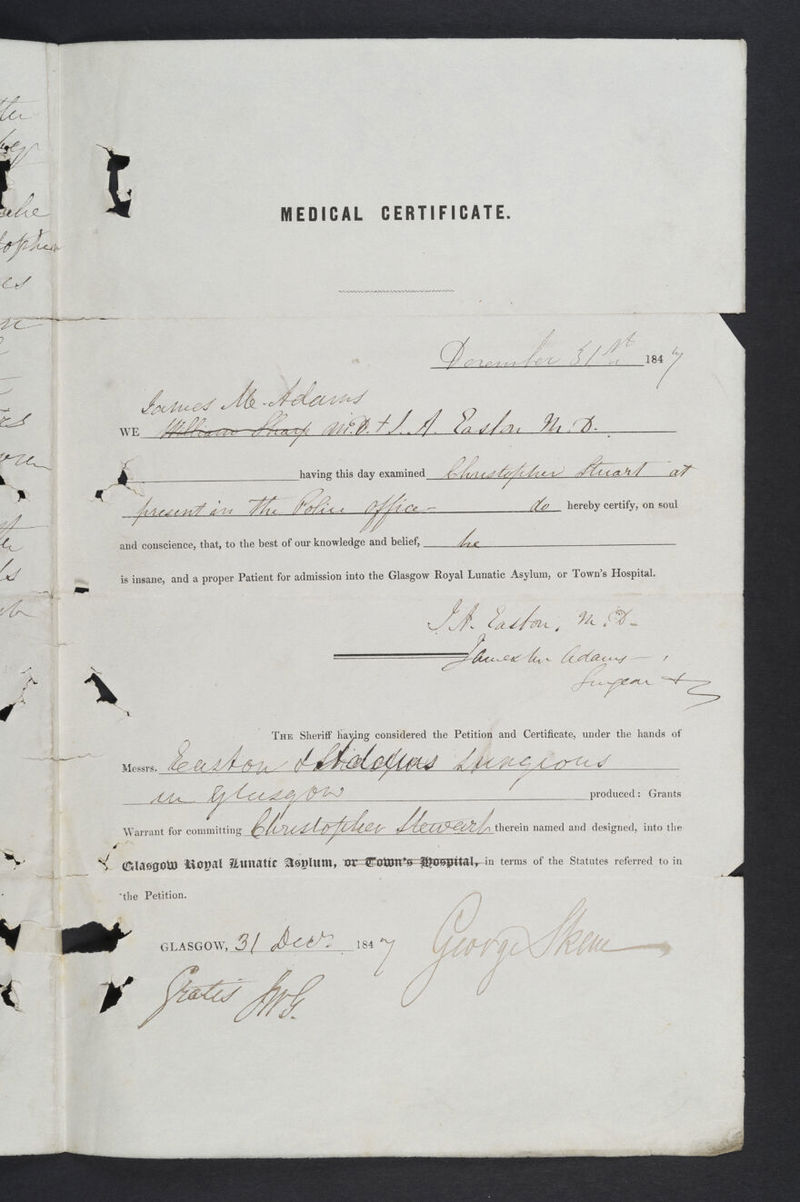 MEDICAL CERTIFICATE.
December 31st 1847
James McAdams
WE William Sharp M.D. & J. A. Easton M.D.
having this day examined Christopher Stuart at
present in the Police Office - do hereby certify, on soul
and conscience, that, to the best of our knowledge and belief, he
is insane, and a proper Patient for admission into the Glasgow Royal Lunatic Asylum, or Town's Hospital.
J. A. Easton, M.D-
James Mc Adams -
Surgeon
THE Sheriff having considered the Petition and Certificate, under the hands of
Messrs. Easton & Adams Surgeons
in Glasgow produced: Grants
Warrant for committing Christopher Stewart therein named and designed, into the
Glasgow Royal Lunatic Asylum, or Town's Hospital, in terms of the Statutes referred to in
the Petition.
GLASGOW, 31 Decr 1847 George Skene
Gratis JWG.